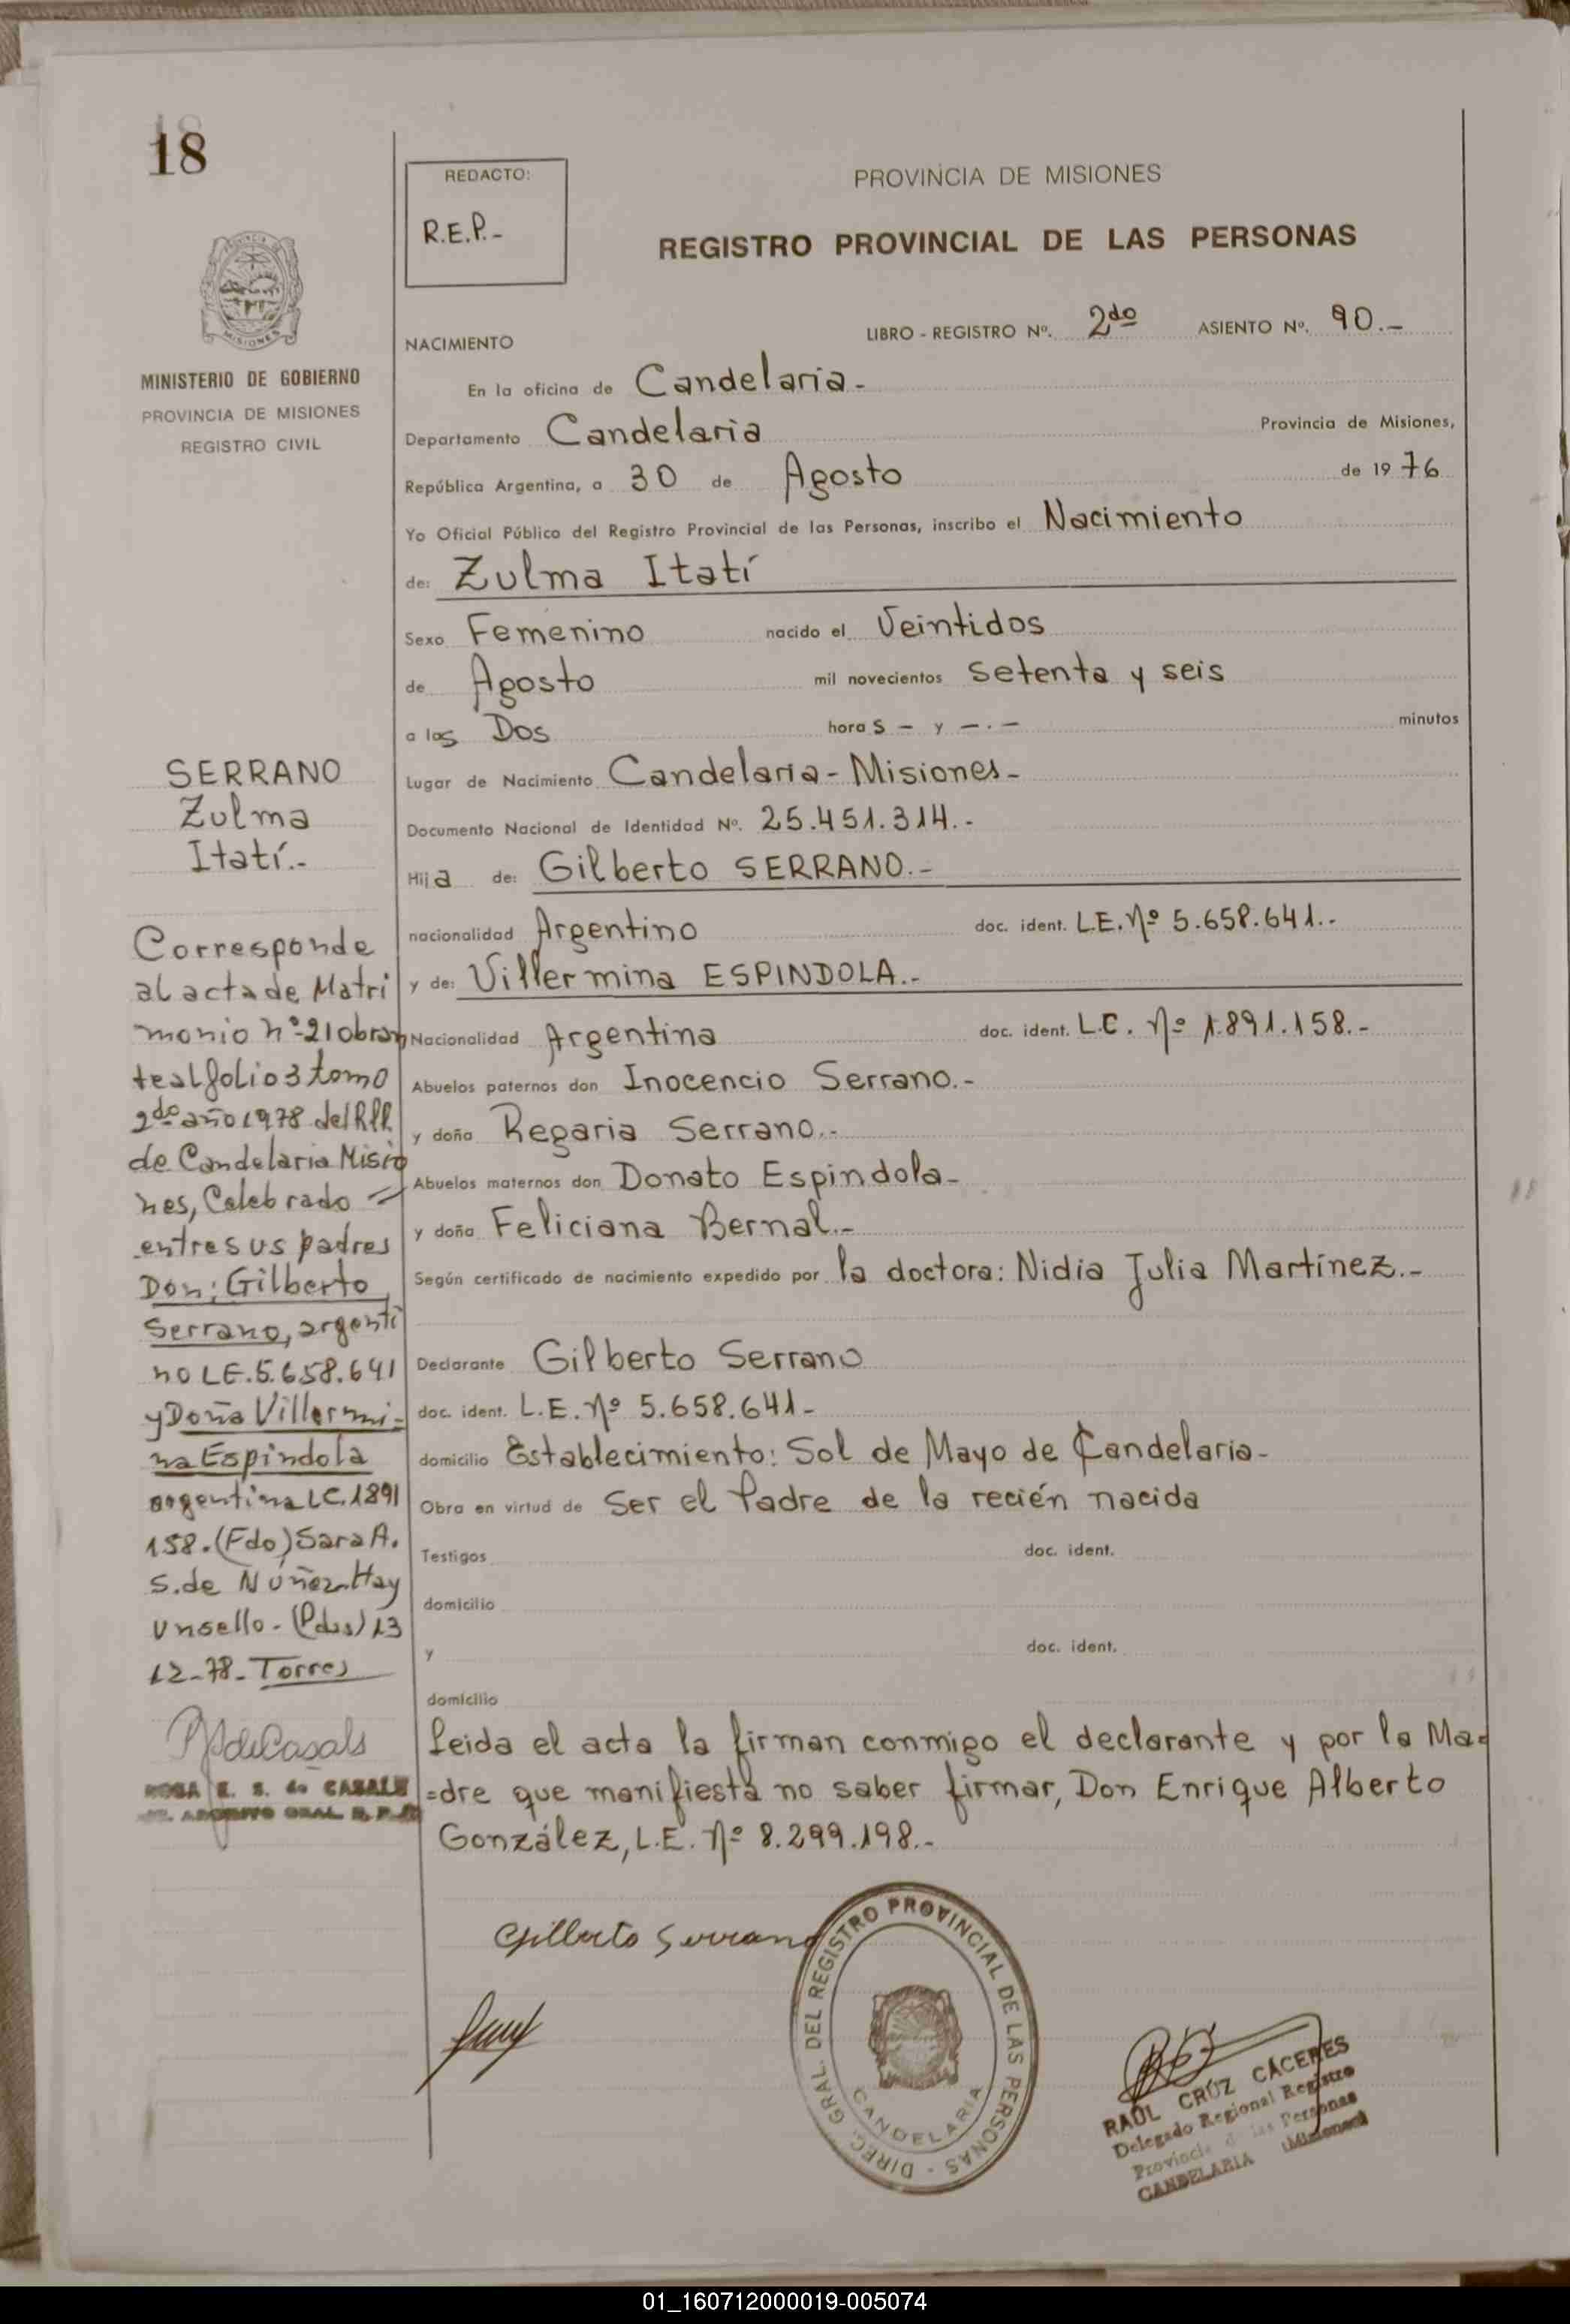 18
REDACTO:
R.E.P.-
PROVINCIA DE MISIONES
REGISTRO PROVINCIAL DE LAS PERSONAS
MISIONES
MINISTERIO DE GOBIERNO
PROVINCIA DE MISIONES
REGISTRO CIVIL
LIBRO - REGISTRO Nº. 2do ASIENTO Nº. 90.-
NACIMIENTO
En la oficina de Candelaria-
Departamento Candelaria Provincia de Misiones,
República Argentina, a 30 de Agosto de 1976
Yo Oficial Público del Registro Provincial de las Personas, inscribo el Nacimiento
de: Zulma Itatí
Sexo Femenino nacido el Veintidos
de Agosto mil novecientos setenta y seis
a las Dos horas - y -.- minutos
Lugar de Nacimiento Candelaria-Misiones-
Documento Nacional de Identidad Nº. 25.451.314.-
Hija de: Gilberto SERRANO.-
nacionalidad Argentino doc. ident. L.E. Nº 5.658.641.-
y de: Villermina ESPINDOLA.-
Nacionalidad Argentina doc. ident. L.C. Nº 1.891.158.-
Abuelos paternos don Inocencio Serrano.-
y doña Regaria Serrano.-
Abuelos maternos don Donato Espindola-
y doña Feliciana Bernal.-
Según certificado de nacimiento expedido por la doctora: Nidia Julia Martínez.-
Declarante Gilberto Serrano
doc. ident. L.E. Nº 5.658.641-
domicilio Establecimiento: Sol de Mayo de Candelaria-
Obra en virtud de Ser el Padre de la recién nacida
Testigos doc. ident.
domicilio
y doc. ident.
domicilio
Leida el acta la firman conmigo el declarante y por la Ma=
=dre que manifiesta no saber firmar, Don Enrique Alberto
González, L.E. Nº 8.299.198.-
SERRANO
Zulma
Itatí.-
Corresponde
al acta de Matri
monio nº-21 obran
te al folio 3 tomo
2do año 1978 del
de Candelaria Misio
nes, Celebrado =
entre sus padres
Don: Gilberto
Serrano, argenti
no LE. 5.658.641
y Doña Villermi-
na Espindola
argentina LC. 1891
158. (Fdo) Sara A.
S. de Núñez. Hay
un sello - (Pdas) 13
12-78- Torres
de Casals
ROSA E. S. de CASALS
Gilberto Serrano
DIREC. GRAL. DEL REGISTRO PROVINCIAL DE LAS PERSONAS -
CANDELARIA
RAÚL CRÚZ CÁCERES
Delegado Regional Registro
Provincia de las Personas
CANDELARIA (Misiones)
01_160712000019-005074